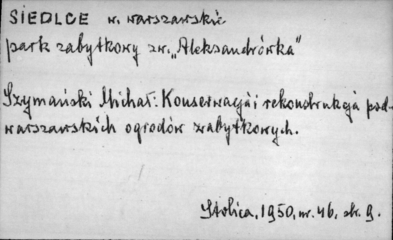 SIEDLCE w. warszawskie
park zabytkowy zw. „Aleksandrówka"
Szymański Michał: Konserwacja i rekonstrukcja pod-
warszawskich ogrodów zabytkowych.
Stolica, 1950, nr. 46, str. 9.